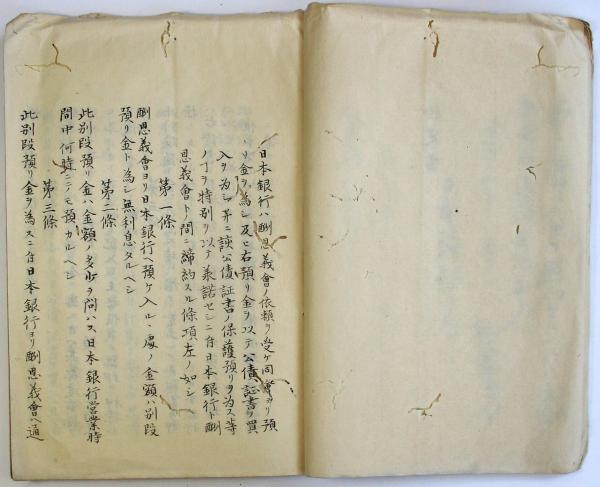 日本銀行ハ酬恩義會ノ依頼ヲ受ケ同會ヨリ預
リ金ヲ為シ及ヒ右預リ金ヲ以テ公債証書ノ買
入ヲ為シ并ニ該公債証書ノ保護預リヲ為ス等
ノヿヲ特別ヲ以テ承諾セシニ付日本銀行ト酬
恩義會ト間ニ締約スル條項左ノ如シ
第一條
酬恩義會ヨリ日本銀行ヘ預ケ入ルヽ處ノ金額ハ別段
預リ金ト為シ無利息タルヘシ
第二條
此別段預リ金ハ金額ノ多少ヲ問ハス日本銀行営業時
間中何時ニテモ預カルヘシ
第三條
此別段預リ金ヲ為スニ付日本銀行ヨリ酬恩義會ヘ通